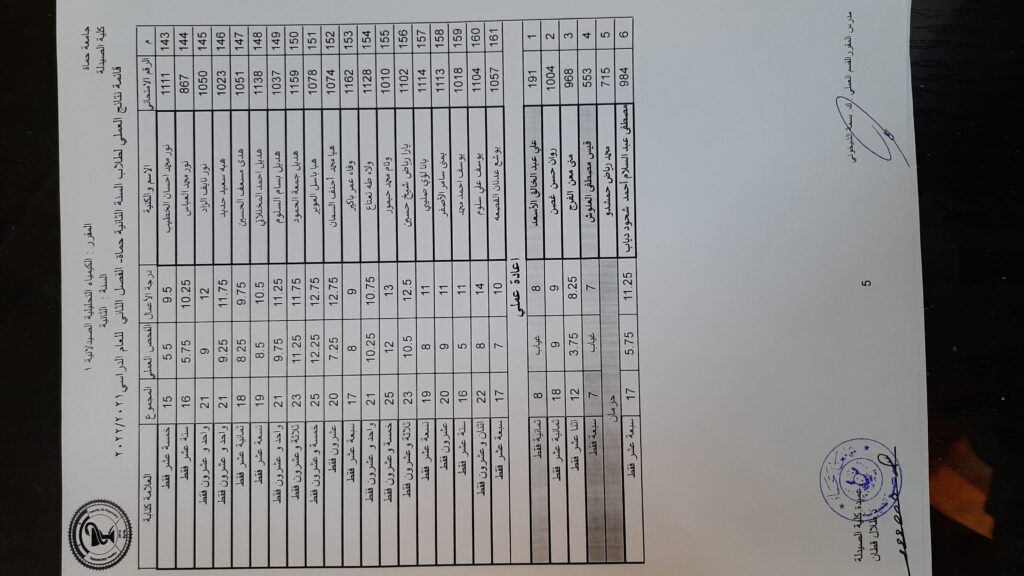 جامعة حماة
كلية الصيدلة
المقرر : الكيمياء التحليلية الصيدلانية ١
السنة : الثانية
قائمة نتائج العملي لطلاب السنة الثانية حماة- الفصل الثاني للعام الدراسي ٢٠٢٢/٢٠٢١
م الرقم الامتحاني الاسم والكنية درجة الأعمال الفحص العملي المجموع العلامة كتابة
143 1111 نور محمد احسان الخطيب 9.5 5.5 15 خمسة عشر فقط
144 867 نور محمد العباس 10.25 5.75 16 ستة عشر فقط
145 1050 نور نايف الزاد 12 9 21 واحد و عشرون فقط
146 1023 هبه سعيد حديد 11.75 9.25 21 واحد و عشرون فقط
147 1051 هدى مسعف الحسين 9.75 8.25 18 ثمانية عشر فقط
148 1138 هديل احمد المخللاتي 10.5 8.5 19 تسعة عشر فقط
149 1037 هديل بسام السلوم 11.25 9.75 21 واحد و عشرون فقط
150 1159 هديل جمعة الحمود 11.75 11.25 23 ثلاثة و عشرون فقط
151 1078 هيا باسل العوير 12.75 12.25 25 خمسة و عشرون فقط
152 1074 هيا محمد احنف السمان 12.75 7.25 20 عشرون فقط
153 1162 وفاء عمر باكير 9 8 17 سبعة عشر فقط
154 1128 ولاء طه نعناع 10.75 10.25 21 واحد و عشرون فقط
155 1010 وئام محمد حيمور 13 12 25 خمسة و عشرون فقط
156 1102 يارا رياض شيخ حسين 12.5 10.5 23 ثلاثة و عشرون فقط
157 1114 يانا لؤي صليبي 11 8 19 تسعة عشر فقط
158 1113 يمنى سامر الأصفر 11 9 20 عشرون فقط
159 1018 يوسف احمد محمد 11 5 16 ستة عشر فقط
160 1104 يوسف علي سلوم 14 8 22 اثنان و عشرون فقط
161 1057 يوشع عدنان القصعه 10 7 17 سبعة عشر فقط
اعادة عملي
1 191 علي عبد الخالق الأسعد 8 غياب 8 ثمانية فقط
2 1004 روان حسن غصن 9 9 18 ثمانية عشر فقط
3 968 منى معن الفرج 8.25 3.75 12 اثنا عشر فقط
4 553 قيس مصطفى العلوش 7 غياب 7 سبعة فقط
5 715 محمد رياض حمشدو حرمان
6 984 مصطفى عبد السلام احمد شحود دياب 11.25 5.75 17 سبعة عشر فقط
مدرس المقرر القسم العملي
5
عميدة كلية الصيدلة